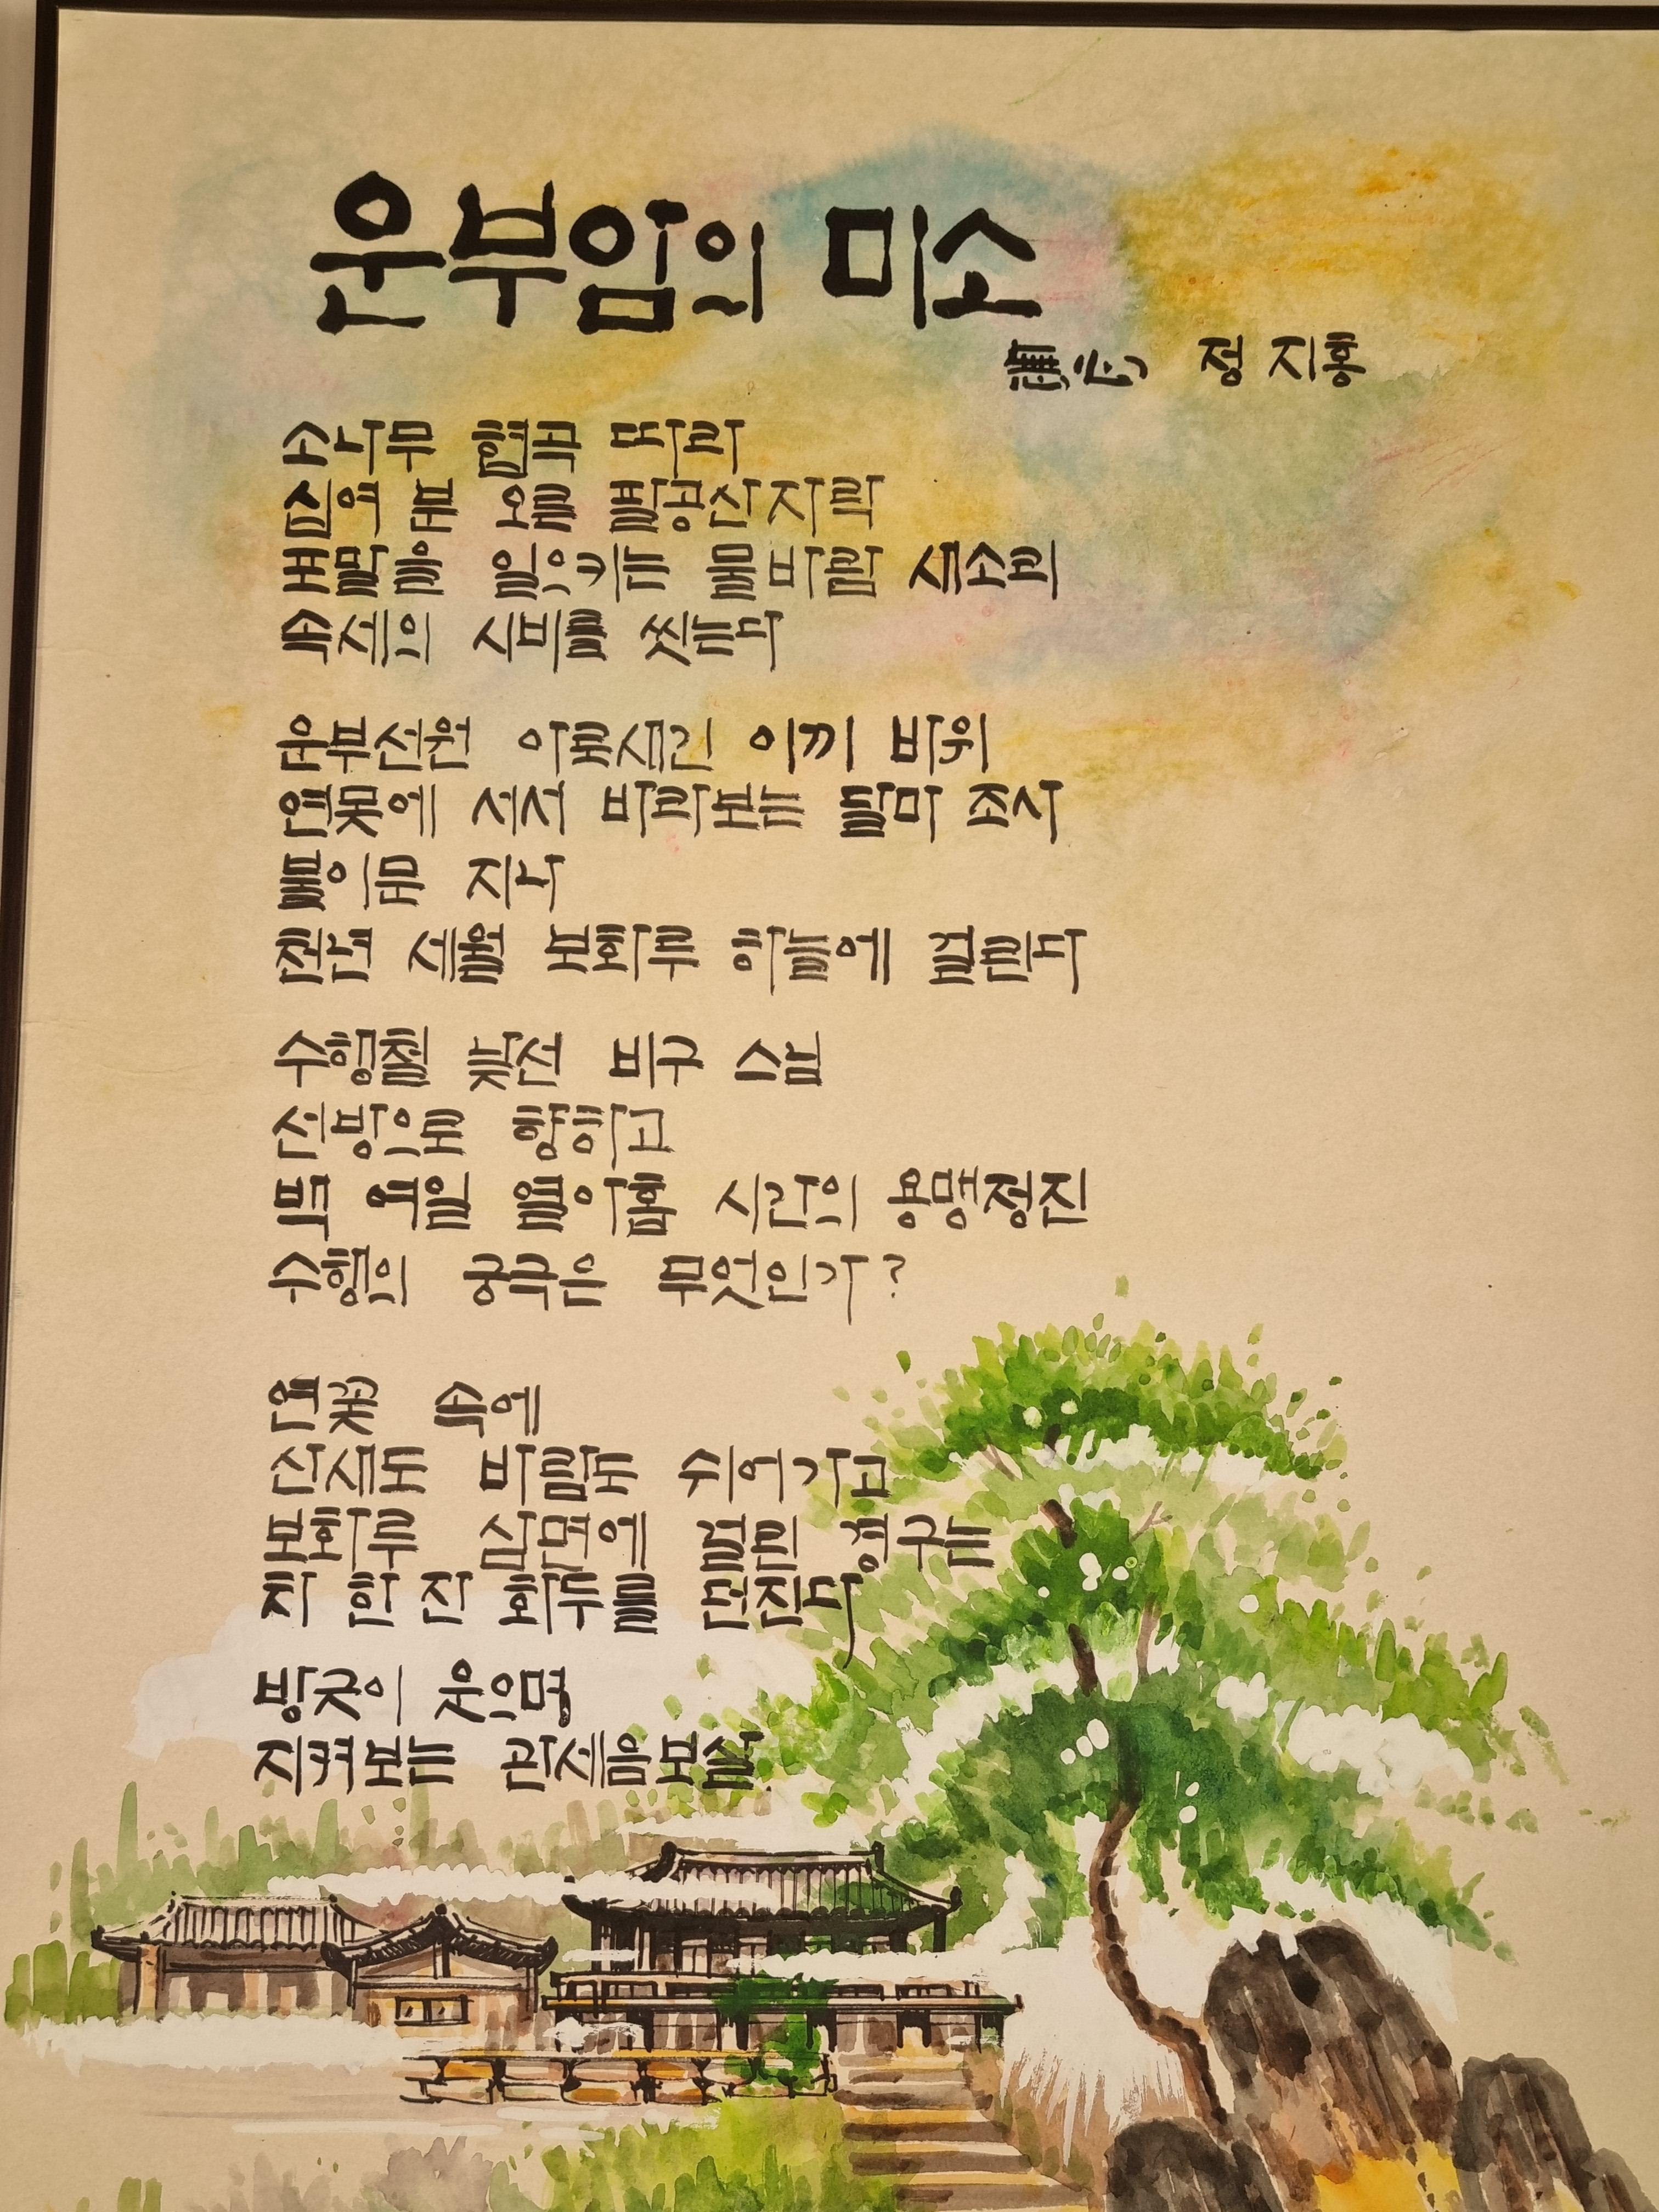 운부암의 미소
정 지홍
소나무 협곡 따라
산의 대 오를 팔공산자락
벼랑을 일으키는 물바람 새소리
속세의 시비를 씻는다
운부선원 아로새긴 이끼 바위
연못에 서서 바라보는 달마 조사
불이문 지나
천년 세월 보화루 하늘에 걸린다
수행철 참선 비구 스님
선방으로 향하고
목 요일 열아홉 시간의 용맹정진
수행의 궁극은 무엇인가?
연꽃 속에
산새도 바람도 쉬어가고
보화루 삼면에 걸린 액구는
차 한 잔 화두를 던진다
방긋이 웃으며
지켜보는 관세음보살